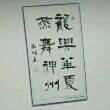 龍興華夏
燕舞神州